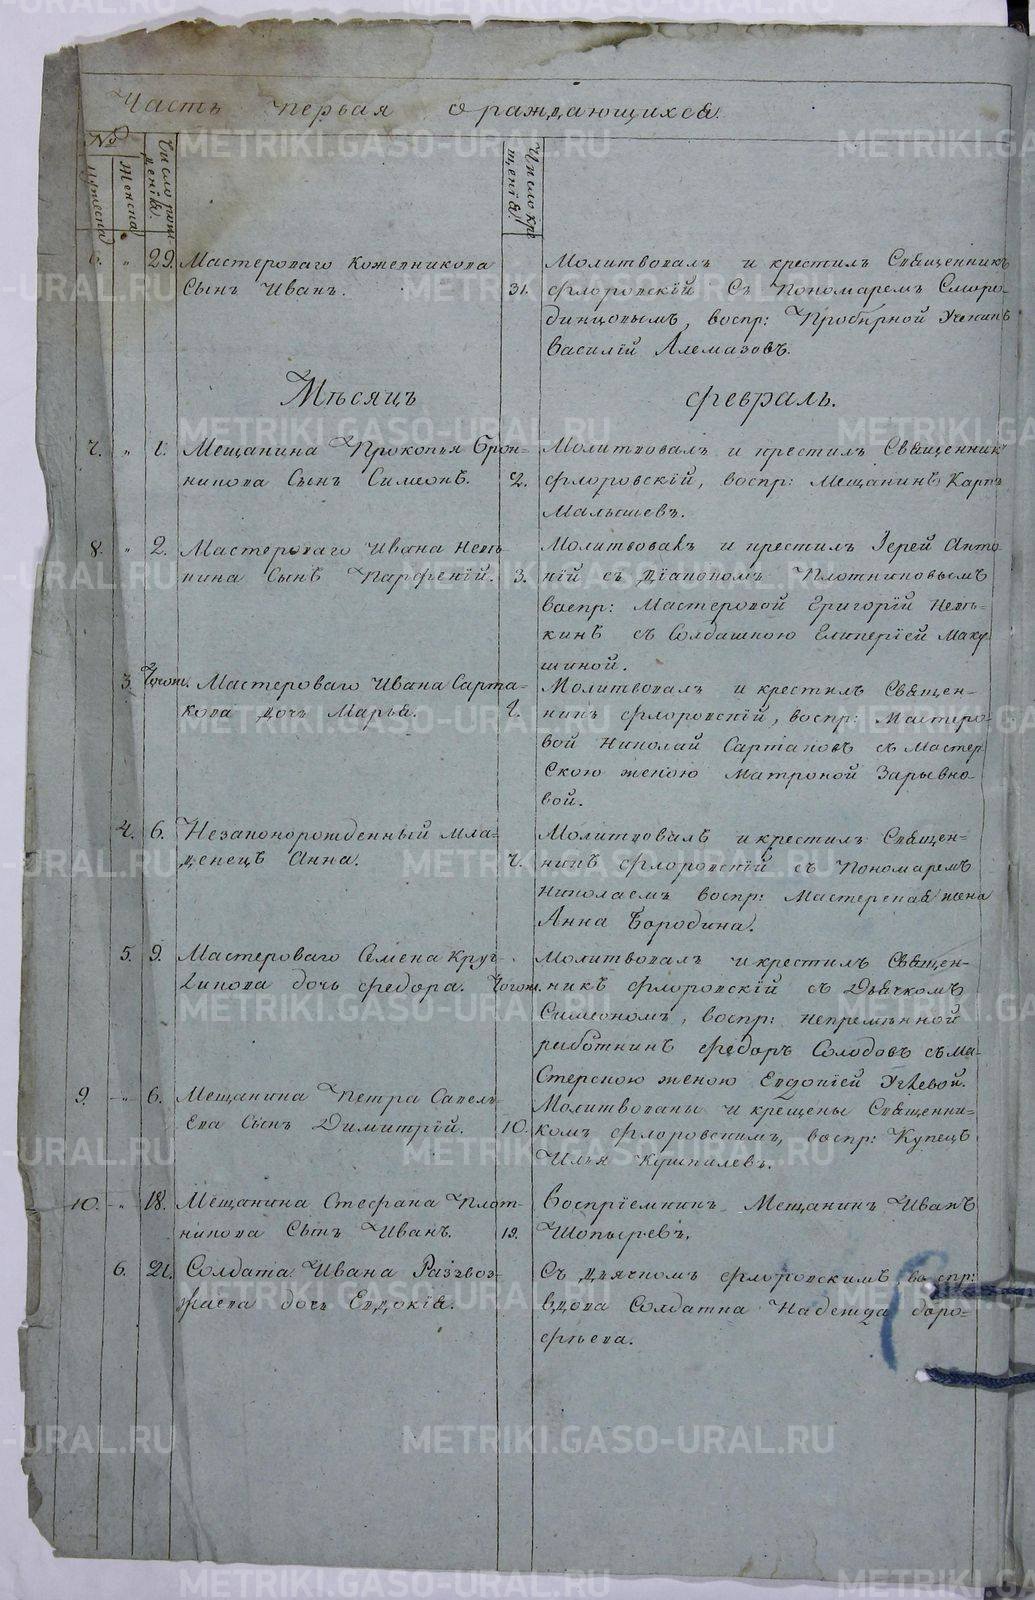 Часть первая о раждающихся.
№
мужеска
женска
Число рож
дения.
Число кре
щения.
6. " 29. Мастероваго Кожевникова
Сынъ Иванъ.
31.
Молитвовалъ и крестилъ Священникъ
Флоровскій Съ Пономаремъ Сморо-
динцовымъ, воспр: Пробирной Ученикъ
Василій Алемазовъ.
Мѣсяцъ Февраль.
7. " 1. Мещанина Прокопья Брон-
никова Сынъ Симеонъ.
2.
Молитвовалъ и крестилъ Священникъ
Флоровскій, воспр: Мещанинъ Карпъ
Малышевъ.
8. " 2. Мастероваго Ивана Неть
кина Сынъ Парфеній.
3.
Молитвовалъ и крестилъ Іерей Анто
ній съ Діакономъ Плотниковымъ
воспр: Мастеровой Григорій Неть-
кинъ съ Солдаткою Еликеріей Маку
шиной.
3. Тогож. Мастероваго Ивана Сарта-
кова дочь Марья.
4.
Молитвовалъ и крестилъ Священ-
никъ Флоровскій, воспр: Мастеро-
вой Николай Сартаковъ съ Мастер
Скою женою Матроной Зарывно-
вой.
4. 6. Незаконорожденный мла-
денецъ Анна.
7.
Молитвовалъ и крестилъ Священ-
никъ Флоровскій съ Пономаремъ
Николаемъ воспр: Мастерская жена
Анна Бородина.
5. 9. Мастероваго Семена Круг-
ликова дочь Федора.
Тогож.
Молитвовалъ и крестилъ Священ-
никъ Флоровскій съ Дьячкомъ
Симеономъ, воспр: непремѣнной
работникъ Федоръ Солодовъ съ Ма-
Стерскою женою Евдокіей
9. " 6. Мещанина Петра Савель
Ева Сынъ Димитрій.
10.
Молитвованы и крещены Священни-
комъ Флоровскимъ, воспр: Купецъ
Илья
10. " 18. Мещанина Стефана Плот
никова Сынъ Иванъ.
19.
Воспріемникъ Мещанинъ Иванъ
Шопыревъ.
6. 21. Солдата Ивана Развоз-
жаева дочь Евдокія.
Съ дьячкомъ Флоровскимъ, воспр:
вдова Солдатка Надежда Доро-
фѣева.
METRIKI.GASO-URAL.RU